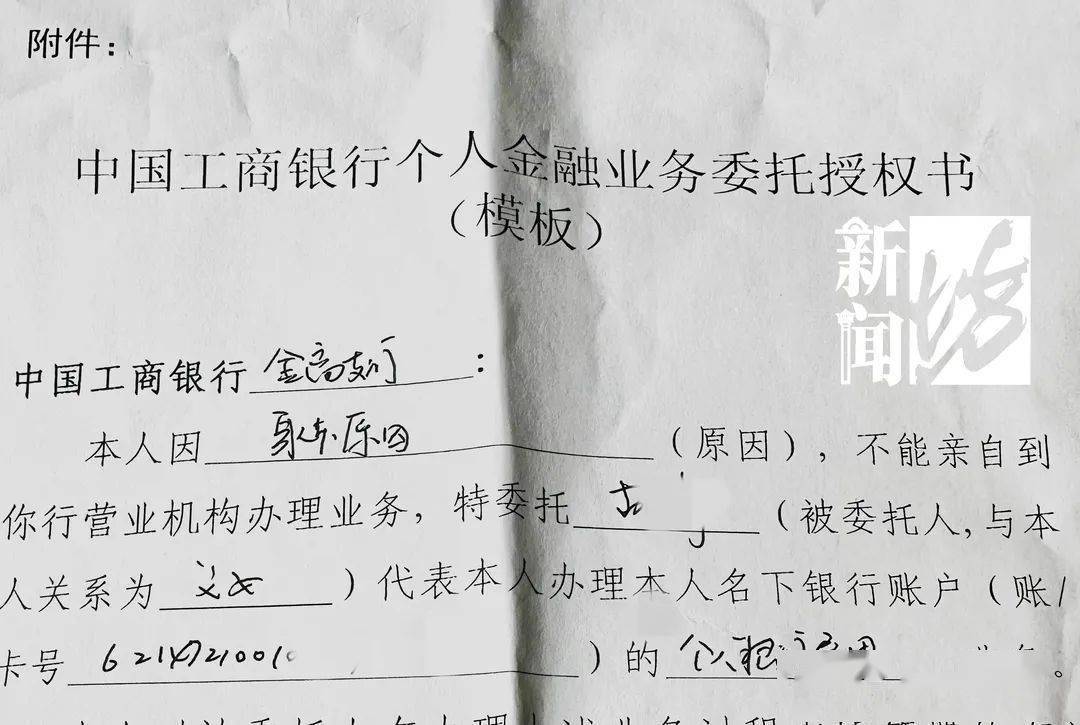 附件：
中国工商银行个人金融业务委托授权书
（模板）
新闻坊
中国工商银行金高支行：
本人因身体原因（原因），不能亲自到
你行营业机构办理业务，特委托古（被委托人,与本
人关系为父女）代表本人办理本人名下银行账户（账/
卡号6214721001）的个人